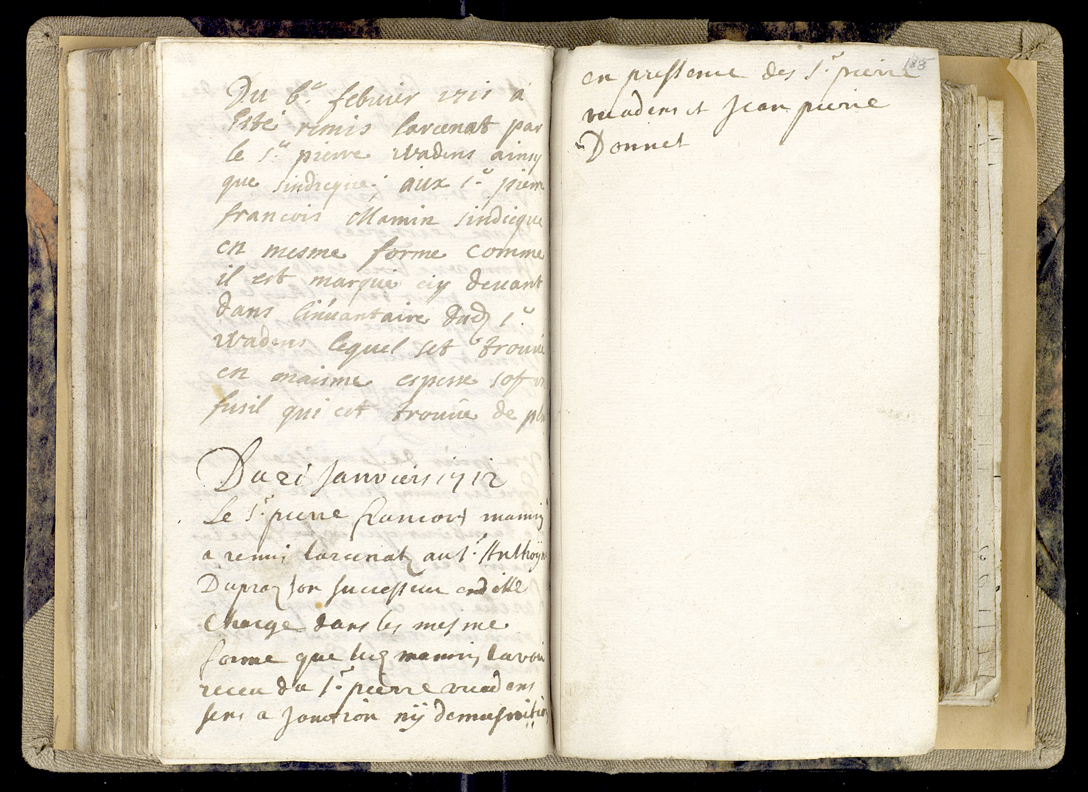 Du 6.e febvrier 1711 a
Esté remis larcenat par
le S.r pierre Wadens ainsy
que sindicque aux S.r pierre
francois Mamin sindicque
en mesme forme comme
il est marque cy devant
dans linvantaire dud S.r
Wadens lequel set trouve
en maisme espesse sof un
fusil qui est trouve de plus
Du 21 Janviers 1712
Le S.r pierre francois mamin
a remis larcenat au S.r Anthoyne
Dupraz son successeur endille
Charge dans les mesme
forme que luy mamin lavoit
receu du S.r pierre vuadens
sens a Jonction nÿ demusnition
185
en pressence des S.r pierre
vuadens et Jean pierre
Donnet